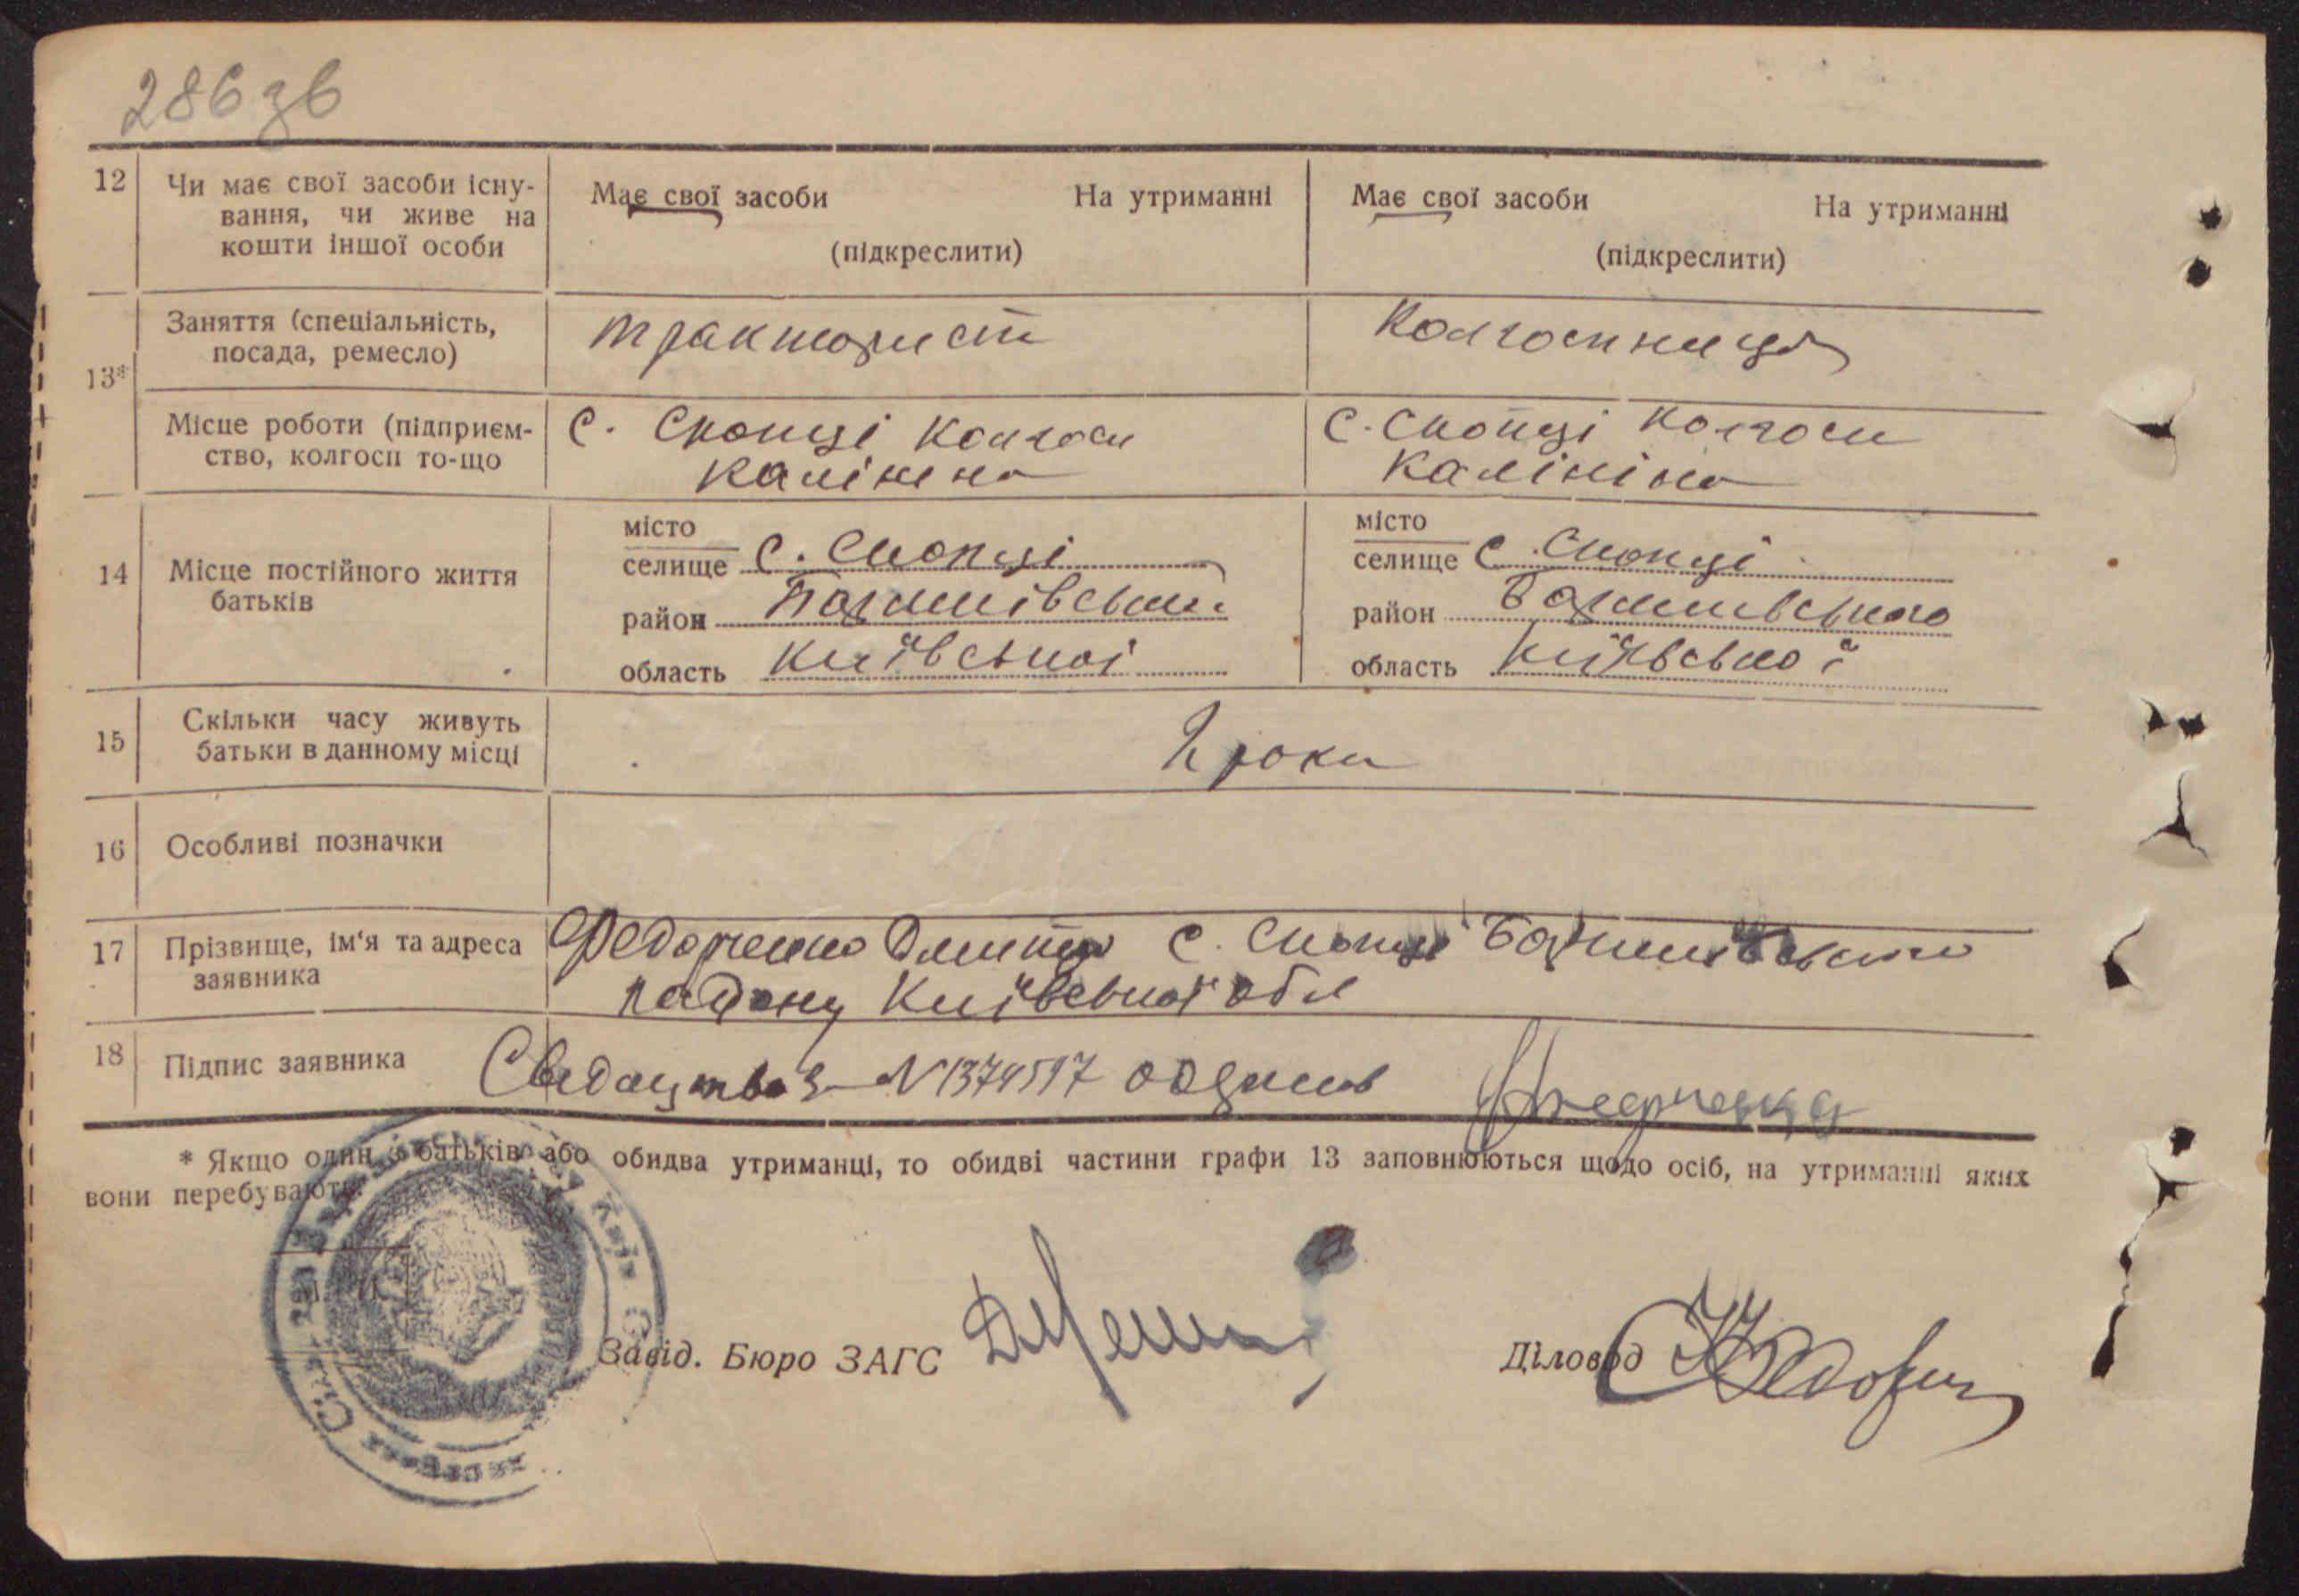 286зв
12 Чи має свої засоби існу- Має свої засоби На утриманні Має свої засоби На утриманні
вання, чи живе на
кошти іншої особи (підкреслити) (підкреслити)
13* Заняття (спеціальність, тракторист Колгоспниця
посада, ремесло)
Місце роботи (підприєм- с. Скопці Колгосп с. Скопці Колгосп
ство, колгосп то-що Калініна Калініна
14 Місце постійного життя батьків
місто місто
селище с. Скопці селище с. Скопці
район район Баришівського
область Київської область Київської
15 Скільки часу живуть 2 роки
батьки в данному місці
16 Особливі позначки
17 Прізвище, ім‘я та адреса Федорченко Дмитро с. Скопці Баришівського
заявника району Київської обл
18 Підпис заявника N 1374597
* Якщо один з батьків або обидва утриманці, то обидві частини графи 13 заповнюються щодо осіб, на утриманні яких
вони перебувають.
Завід. Бюро ЗАГС Діловод